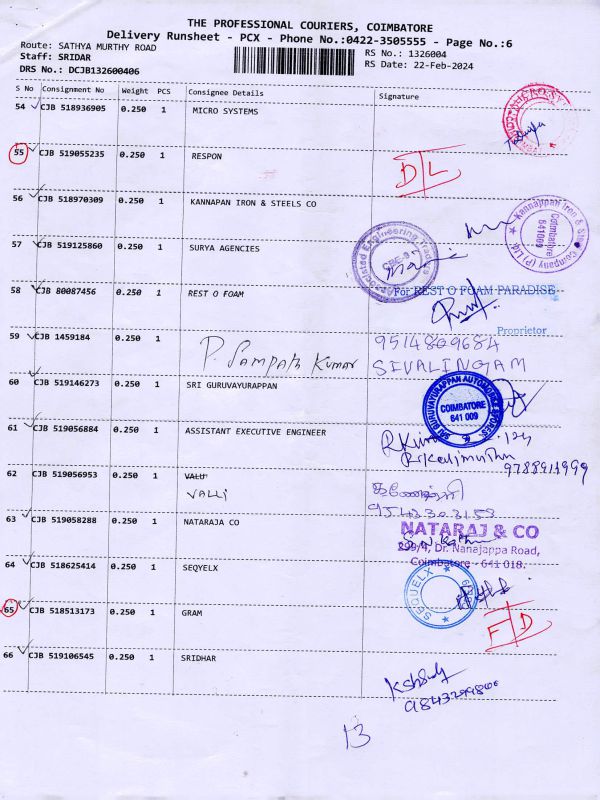 THE PROFESSIONAL COURIERS, COIMBATORE
Delivery Runsheet - PCX - Phone No.:0422-3505555 - Page No.:6
Route: SATHYA MURTHY ROAD RS No.: 1326004
Staff: SRIDAR RS Date: 22-Feb-2024
DRS No.: DCJB132600406
S No Consignment No Weight PCS Consignee Details Signature
54 CJB 518936905 0.250 1 MICRO SYSTEMS
55 CJB 519055235 0.250 1 RESPON D/L
56 CJB 518970309 0.250 1 KANNAPAN IRON & STEELS CO
Kannappan Iron & Company (P) Ltd. Coimbatore 641009
57 CJB 519125860 0.250 1 SURYA AGENCIES
58 CJB 80087456 0.250 1 REST O FOAM
For REST O FOAM PARADISE
Proprietor
59 CJB 1459184 0.250 1 P. Sampath Kumar 9514809684
SIVALINGAM
60 CJB 519146273 0.250 1 SRI GURUVAYURAPPAN
SRI GURUVAYURAPPAN AUTOMOBILE SPORES COIMBATORE 641 009
61 CJB 519056884 0.250 1 ASSISTANT EXECUTIVE ENGINEER
9788911999
62 CJB 519056953 0.250 1 VALU
VALLI
63 CJB 519058288 0.250 1 NATARAJA CO
NATARAJ & CO
299/4, Dr. Nanajappa Road,
Coimbatore - 641 018.
64 CJB 518625414 0.250 1 SEQYELX
SEQUELX
65 CJB 518513173 0.250 1 GRAM F/D
66 CJB 519106545 0.250 1 SRIDHAR
13